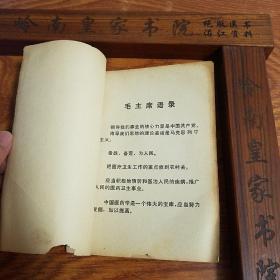 岭南皇家书院
绝版溪书
酒红资料
毛主席语录
领导我们事业的核心力量是中国共产党。
指导我们思想的理论基础是马克思列宁
主义。
备战、备荒、为人民。
把医疗卫生工作的重点放到农村去。
应当积极地预防和医治人民的疾病，推广
人民的医药卫生事业。
中国医药学是一个伟大的宝库，应当努力
发掘，加以提高。
岭南皇家书院